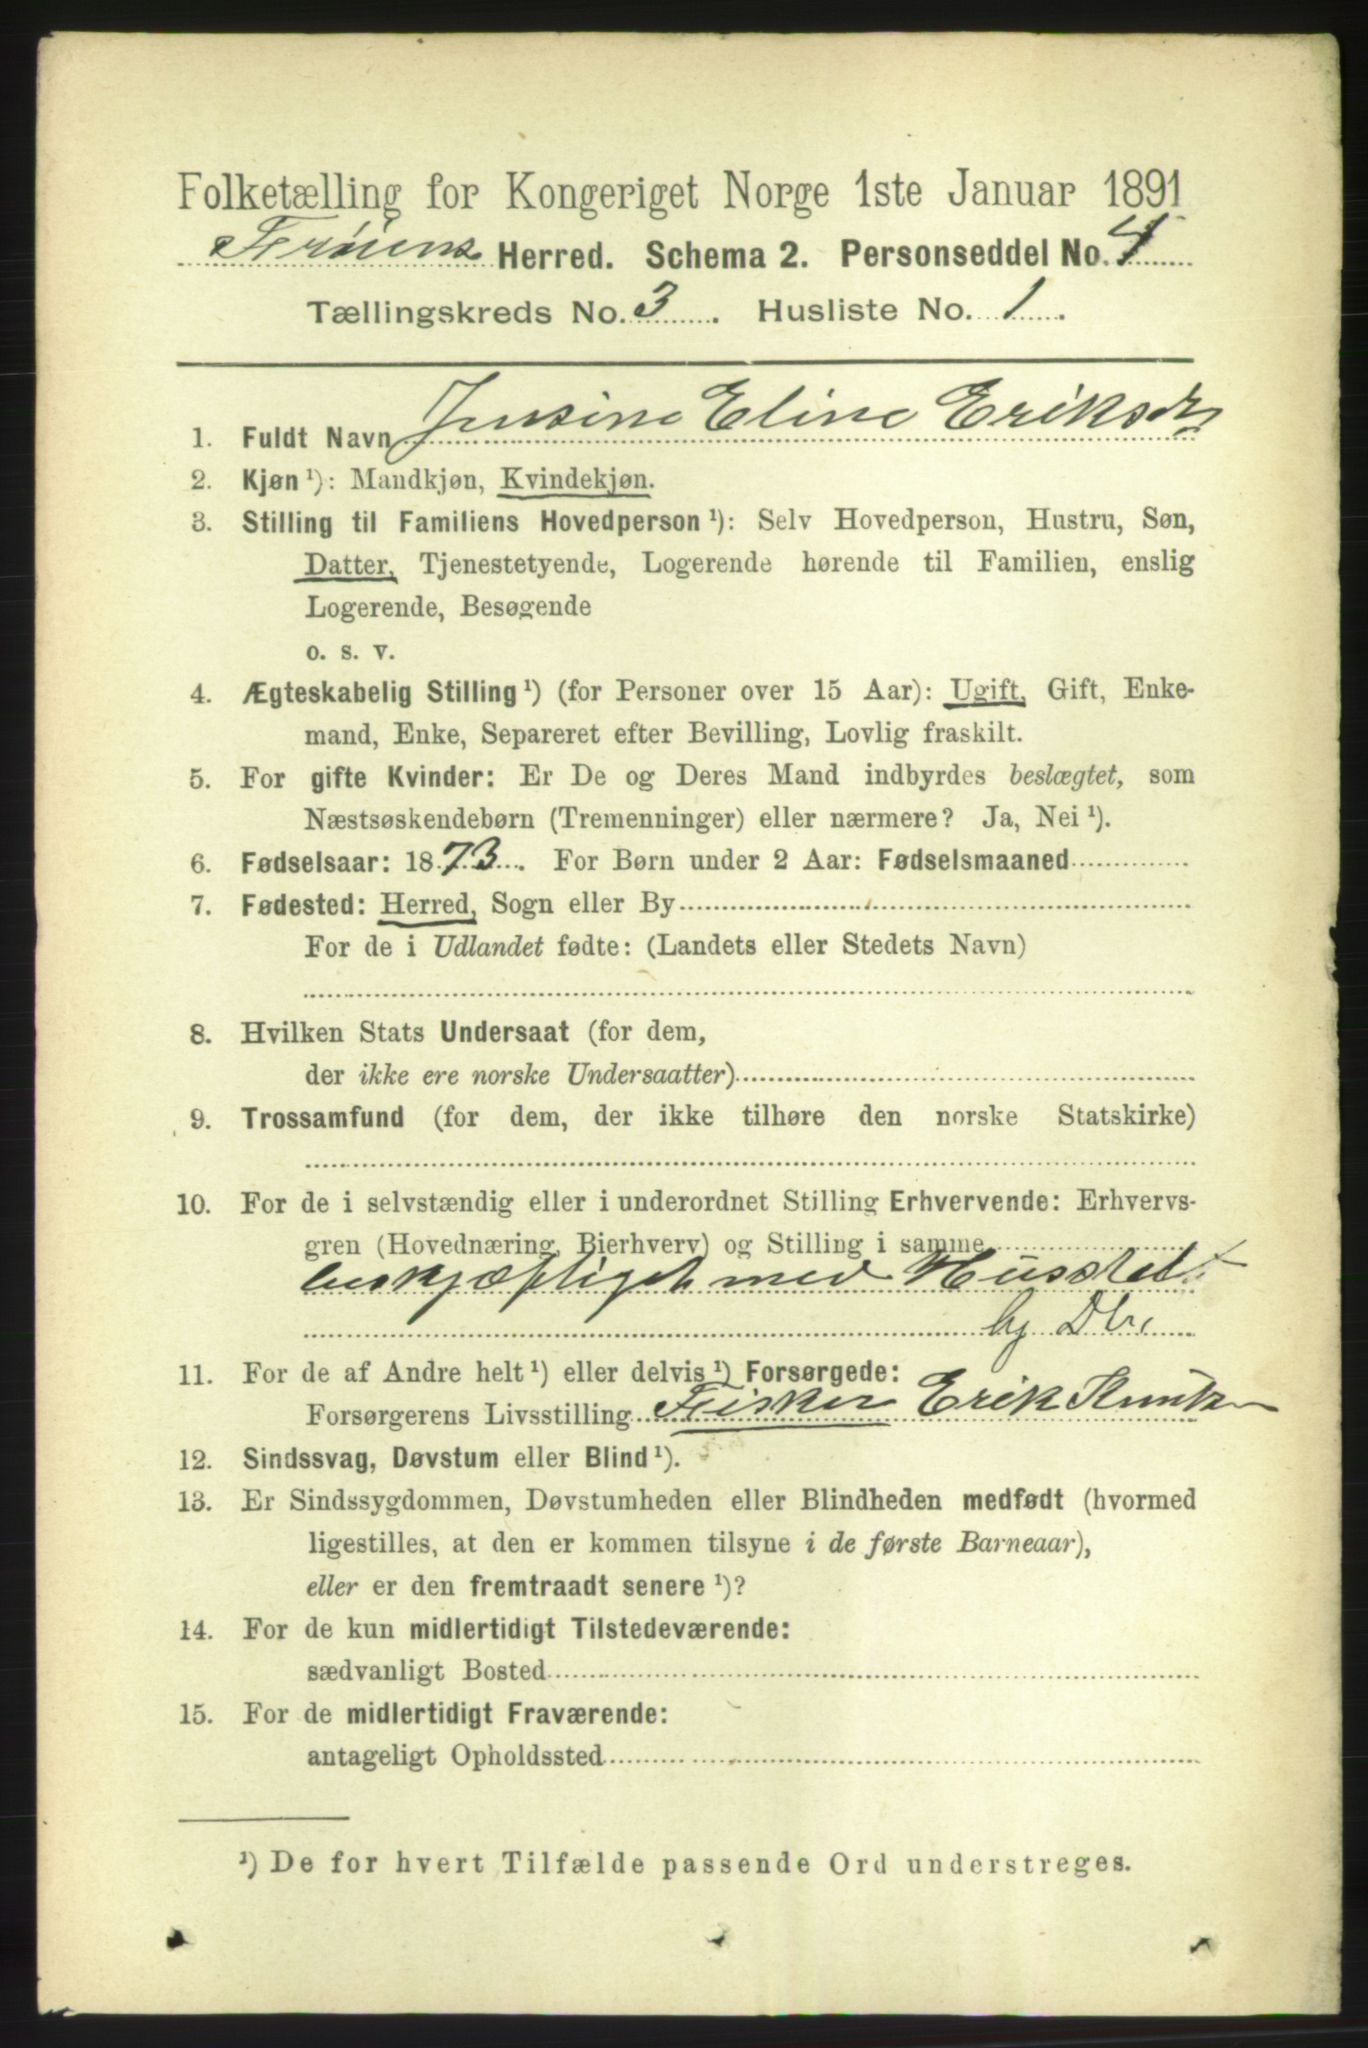 Folketælling for Kongeriget Norge 1ste Januar 1891
Frøiens Herred. Schema 2. Personseddel No. 4
Tællingskreds No. 3. Husliste No. 1.
1. Fuldt Navn Jensine Eline Eriksdtr
2. Kjøn ¹): Mandkjøn, Kvindekjøn.
3. Stilling til Familiens Hovedperson ¹): Selv Hovedperson, Hustru, Søn,
Datter, Tjenestetyende, Logerende hørende til Familien, enslig
Logerende, Besøgende
o. s. v.
4. Ægteskabelig Stilling ¹) (for Personer over 15 Aar): Ugift, Gift, Enke-
mand, Enke, Separeret efter Bevilling, Lovlig fraskilt.
5. For gifte Kvinder: Er De og Deres Mand indbyrdes beslægtet, som
Næstsøskendebørn (Tremenninger) eller nærmere? Ja, Nei ¹).
6. Fødselsaar: 1873. For Børn under 2 Aar: Fødselsmaaned
7. Fødested: Herred, Sogn eller By
For de i Udlandet fødte: (Landets eller Stedets Navn)
8. Hvilken Stats Undersaat (for dem,
der ikke ere norske Undersaatter)
9. Trossamfund (for dem, der ikke tilhøre den norske Statskirke)
10. For de i selvstændig eller i underordnet Stilling Erhvervende: Erhvervs-
gren (Hovednæring, Bierhverv) og Stilling i samme
beskjæftiget med Husstel
hj Dtr.
11. For de af Andre helt ¹) eller delvis ¹) Forsørgede:
Forsørgerens Livsstilling Fisker Erik Knuts
12. Sindssvag, Døvstum eller Blind ¹).
13. Er Sindssygdommen, Døvstumheden eller Blindheden medfødt (hvormed
ligestilles, at den er kommen tilsyne i de første Barneaar),
eller er den fremtraadt senere ¹)?
14. For de kun midlertidigt Tilstedeværende:
sædvanligt Bosted
15. For de midlertidigt Fraværende:
antageligt Opholdssted
¹) De for hvert Tilfælde passende Ord understreges.